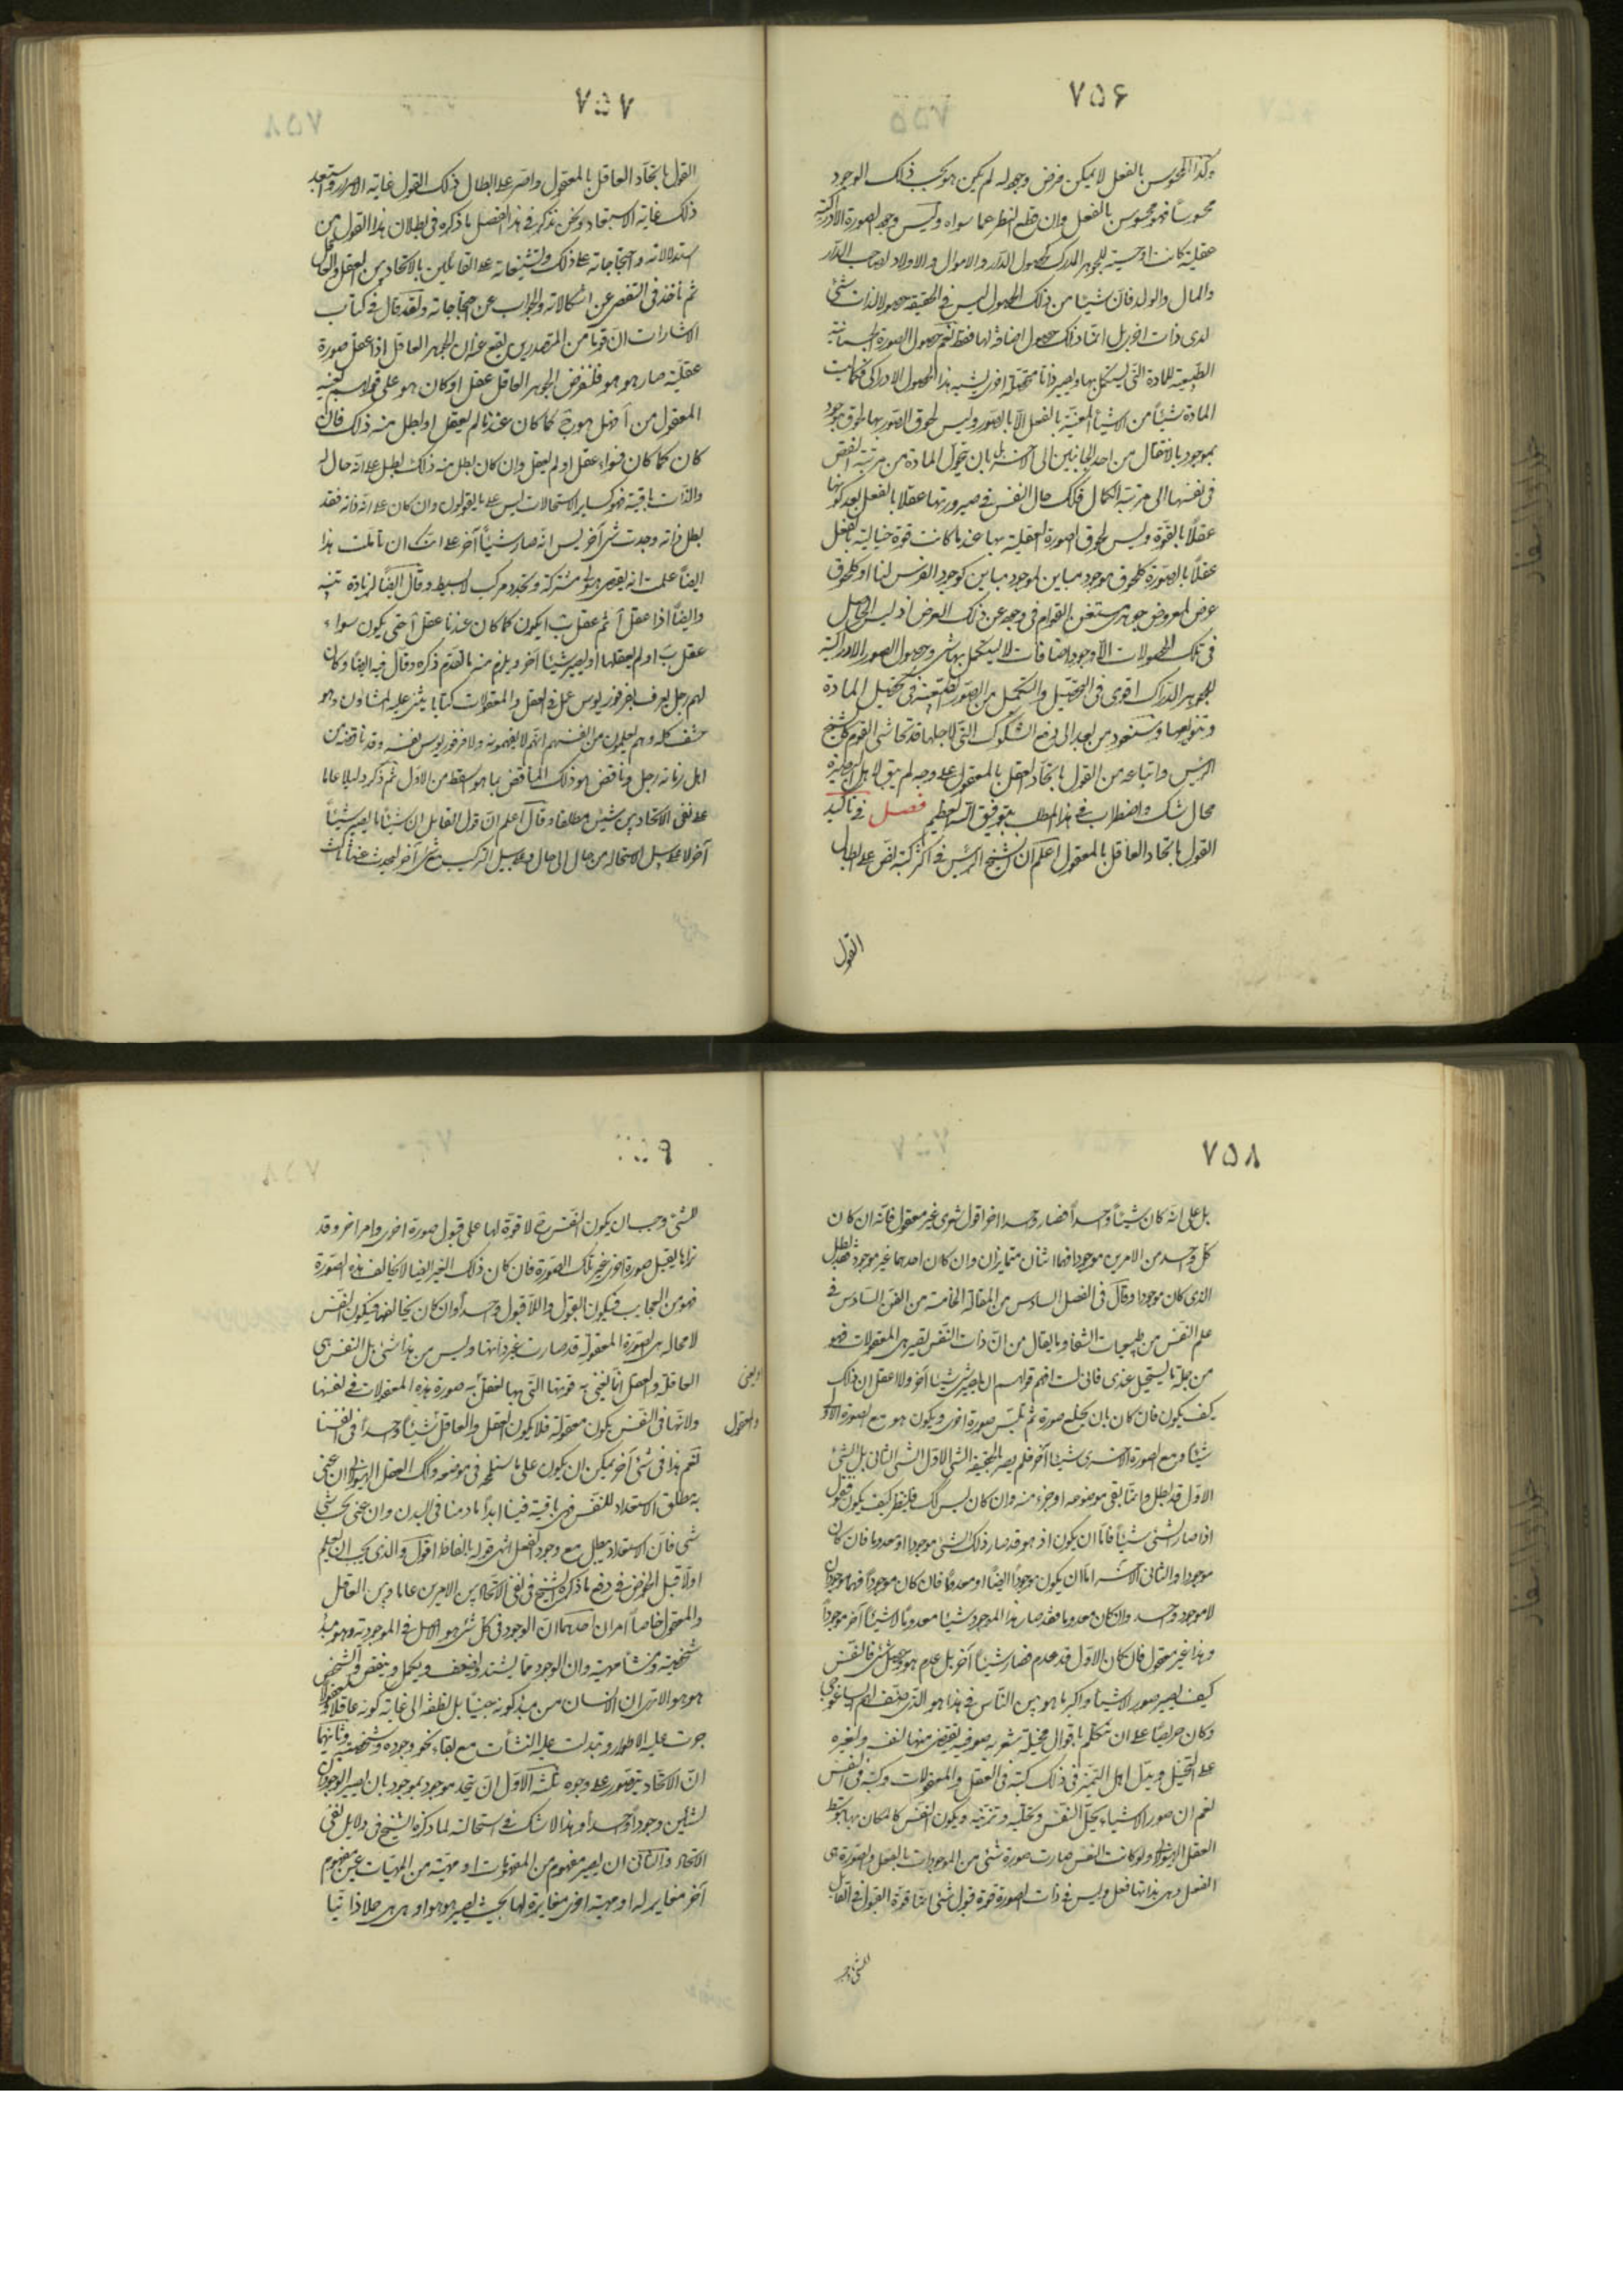 ٧٥۶
وكذا المحسوس بالفعل لا يمكن فرض وجود له لم يكن هو بحسب ذلك الوجود
محسوساً فهو محسوس بالفعل وان قطع النظر عما سواه وليس وجود الصورة الادراكية
عقلية كانت او حسية للجوهر المدرك كحصول الدار والاموال والاولاد لصاحب الدار
والمال والولد فان شيئا من ذلك الحصول ليس في الحقيقة حصولا لذات شئ
لدى ذات اخرى بل انما ذلك حصول اضافة لها فقط نعم حصول الصورة الجسمانية
الطبيعية للمادة التي يستكمل بها ويصير ذاتا متحصلة اخرى يشبه هذا الحصول الادراكي فكما ليست
المادة شيئاً من الاشياء المعينة بالفعل الا بالصور وليس لحوق الصور بها لحوق موجود
بموجود بالانتقال من احد الجانبين الى الآخر بل بان يتحول المادة من مرتبة النقص
في نفسها الى مرتبة الكمال فكذلك حال النفس في صيرورتها عقلا بالفعل بعد كونها
عقلاً بالقوة وليس لحوق الصورة العقلية بها عند ما كانت قوة خيالية بالفعل
عقلاً بالصورة كلحوق موجود مباين لموجود مباين كوجود الفرس لنا او كلحوق
عرض لمعروض جوهرى مستغن القوام في وجوده عن ذلك العرض اذ ليس الحاصل
في تلك الحصولات الا وجود اضافات لا يستكمل بها شئ وحصول الصور الادراكية
للجوهر الدراك اقوى في التحصيل والتكميل من الصور الطبيعية في تحصيل المادة
وتنويعها وسنعود من بعد الى دفع الشكوك التي لاجلها قد تحاشى القوم كالشيخ
الرئيس واتباعه من القول باتحاد العقل بالمعقول على وجه لم يبق لاهل البصيرة
محال شك واضطراب في هذا المطلب بتوفيق الله العظيم فصل في تأكيد
القول باتحاد العاقل بالمعقول اعلم ان الشيخ الرئيس في اكثر كتبه نص على ابطال
القول
٧٥٧
القول باتحاد العاقل بالمعقول واصر على ابطال ذلك القول غاية الاصرار واستبعد
ذلك غاية الاستبعاد ونحن نذكر في هذا الفصل ما ذكره في بطلان هذا القول من
استدلالاته واحتجاجاته على ذلك وتشنيعاته على القائلين بالاتحاد بين العقل والعاقل
ثم ناخذ في التفصى عن اشكالاته والجواب عن احتجاجاته ولقد قال في كتاب
الاشارات ان قوما من المتصدرين يقع عندهم ان الجوهر العاقل اذا عقل صورة
عقلية صار هو هو فلنفرض الجوهر العاقل عقل ا وكان هو على قولهم بعينه
المعقول من آ فهل هو ح كما كان عند ما لم يعقل ا وبطل منه ذلك فان
كان كما كان فسواء عقل ا ولم يعقل وان كان بطل منه ذلك ابطل على انه حال له
والذات باقية فهو كساير الاستحالات ليس على ما يقولون وان كان على انه ذاته فقد
بطل ذاته وحدث شئ آخر ليس انه صار شيئاً آخر على انك ان تاملت هذا
ايضاً علمت انه يقتضى هيولى مشتركة وتجدد مركب لا بسيط وقال ايضاً لزيادة تنبيه
وايضاً اذا عقل آ ثم عقل ب ايكون كما كان عند ما عقل آ حتى يكون سواء
عقل ب او لم يعقلها او يصير شيئا آخر ويلزم منه ما تقدم ذكره وقال فيه ايضا وكان
لهم رجل يعرف بفرفوريوس عمل في العقل والمعقولات كتابا يثنى عليه المشاؤن وهو
حشف كله وهم يعلمون من انفسهم انهم لا يفهمونه ولا فرفوريوس نفسه وقد ناقضه من
اهل زمانه رجل وناقض هو ذلك المناقض بما هو اسقط من الاول ثم ذكر دليلا عاما
على نفى الاتحاد بين شيئين مطلقا وقال اعلم ان قول القائل ان شيئا ما يصير شيئاً
آخر لا على سبيل الاستحالة من حال الى حال ولا على سبيل التركيب مع شئ آخر ليحدث عنهما ثالث
٧٥٨
بل على انه كان شيئاً واحداً فصار واحدا اخر قول شعرى غير معقول فانه ان كان
كل واحد من الامرين موجودا فهما اثنان متمايزان وان كان احدهما غير موجود فقد بطل
الذى كان موجودا وقال في الفصل السادس من المقالة الخامسة من الفن السادس في
علم النفس من طبيعيات الشفا وما يقال من ان ذات النفس تصير هى المعقولات فهو
من جملة ما يستحيل عندى فانى لست افهم قولهم ان يصير شئ شيئا آخر ولا اعقل ان ذلك
كيف يكون فان كان بان يخلع صورة ثم يلبس صورة اخرى ويكون هو مع الصورة الاولى
شيئا ومع الصورة الاخرى شيئا آخر فلم يصر بالحقيقة الشئ الاول الشئ الثانى بل الشئ
الاول قد بطل وانما بقى موضوعه او جزء منه وان كان ليس كك فلينظر كيف يكون فنقول
اذا صار الشئ شيئاً فاما ان يكون اذ هو قد صار ذلك الشئ موجودا او معدوما فان كان
موجودا والثانى الآخر اما ان يكون موجوداً ايضاً او معدوماً فان كان موجوداً فهما موجودان
لا موجود واحد وان كان معدوما فقد صار هذا الموجود شيئا معدوما لا شيئاً آخر موجوداً
وهذا غير معقول فان كان الاول قد عدم فما صار شيئاً آخر بل عدم هو وحصل شئ آخر فالنفس
كيف يصير صور الاشياء واكثر ما هوس الناس في هذا هو الذى صنف لهم ايساغوجى
وكان حريصا على ان يتكلم باقوال مخيلة شعرية صوفية يقتصر منها لنفسه ولغيره
على التخيل ويدل اهل التميز في ذلك كتبه في العقل والمعقولات وكتبه في النفس
نعم ان صور الاشياء يحل النفس وتحليه وتزينه ويكون النفس كالمكان لها بتوسط
العقل الهيولانى ولو كانت النفس صارت صورة شئ من الموجودات بالفعل والصورة هى
الفعل وهى بذاتها فعل وليس في ذات الصورة قوة قبول شئ انما قوة القبول في القابل
للشئ وجب
٧٥٩
للشئ وجب ان يكون النفس ح لا قوة لها على قبول صورة اخرى وامر اخر وقد
نراها يقبل صورة اخرى غير تلك الصورة فان كان ذلك الغير ايضا لا يخالف هذه الصورة
فهو من العجايب فيكون القبول واللاقبول واحدا وان كان يخالفها فيكون النفس
لا محالة هى الصورة المعقولة قد صارت غير ذاتها وليس من هذا شئ بل النفس هى
العاقلة والعقل انما يعنى به قوتها التى بها تعقل او يعنى به صورة هذه المعقولات في نفسها
ولانها في النفس يكون معقولة فلا يكون العقل والعاقل والمعقول شيئاً واحداً في انفسنا
نعم هذا في شئ آخر يمكن ان يكون على ما سنلمحه في موضعه وكك العقل الهيولانى ان عنى
به مطلق الاستعداد للنفس فهى باقية فينا ابداً ما دمنا في البدن وان عنى بحسب شئ
شئ فان الاستعداد يبطل مع وجود الفعل انتهى قوله بالفاظه اقول والذى يجب ان يعلم
اولا قبل الخوض في دفع ما ذكره الشيخ في نفى الاتحاد بين الامرين عاما وبين العاقل
والمعقول خاصاً امران احدهما ان الوجود في كل شئ هو الاصل في الموجودية وهو مبدأ
شخصيته ومنشأ مهيته وان الوجود مما يشتد ويضعف ويكمل وينقص والشخص
هو هو الا ترى ان الانسان من مبدء كونه جنينا بل نطفة الى غاية كونه عاقلا ومعقولا
جرت عليه الاطوار وتبدلت عليه النشأت مع بقاء نحو وجوده وشخصيته وثانيهما
ان الاتحاد يتصور على وجوه ثلثة الاول ان يتحد موجود بموجود بان يصير الوجودان
لشيئين وجودا واحدا وهذا لا شك في استحالته لما ذكره الشيخ في دلايل نفى
الاتحاد والثانى ان يصير مفهوم من المفهومات او مهية من المهيات عين مفهوم
آخر مغاير له او مهية اخرى مغايرة لها بحيث يصير هو هو او هى هى حملا ذاتيا
او يعنى
والمعقول